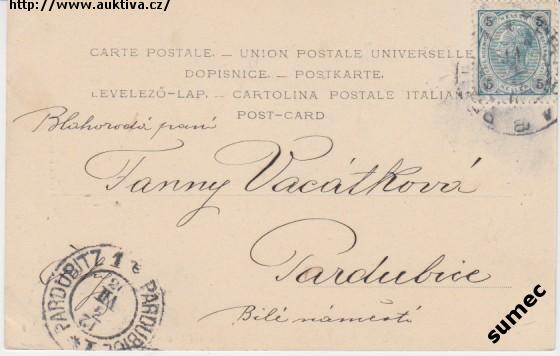 http://www.auktiva.cz/
CARTE POSTALE. — UNION POSTALE UNIVERSELLE
DOPISNICE. — POSTKARTE.
LEVELEZŐ-LAP. — CARTOLINA POSTALE ITALIAN
POST-CARD
5 5
5 5
Blahorodá paní
Fanny Vacátková
Pardubice
Bílé náměstí
PARDUBITZ 1 PARDUBICE 1
sumec